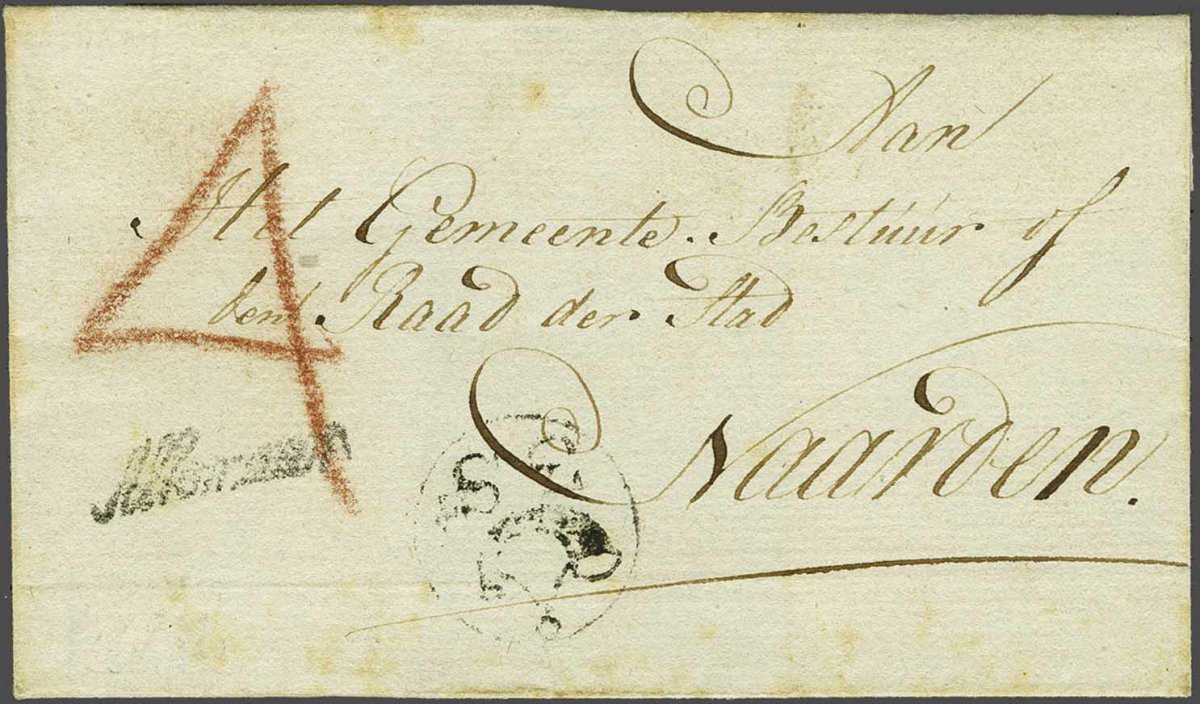 4
Aan
Het Gemeente Bestúúr of
den Raad der Stad
Naarden.